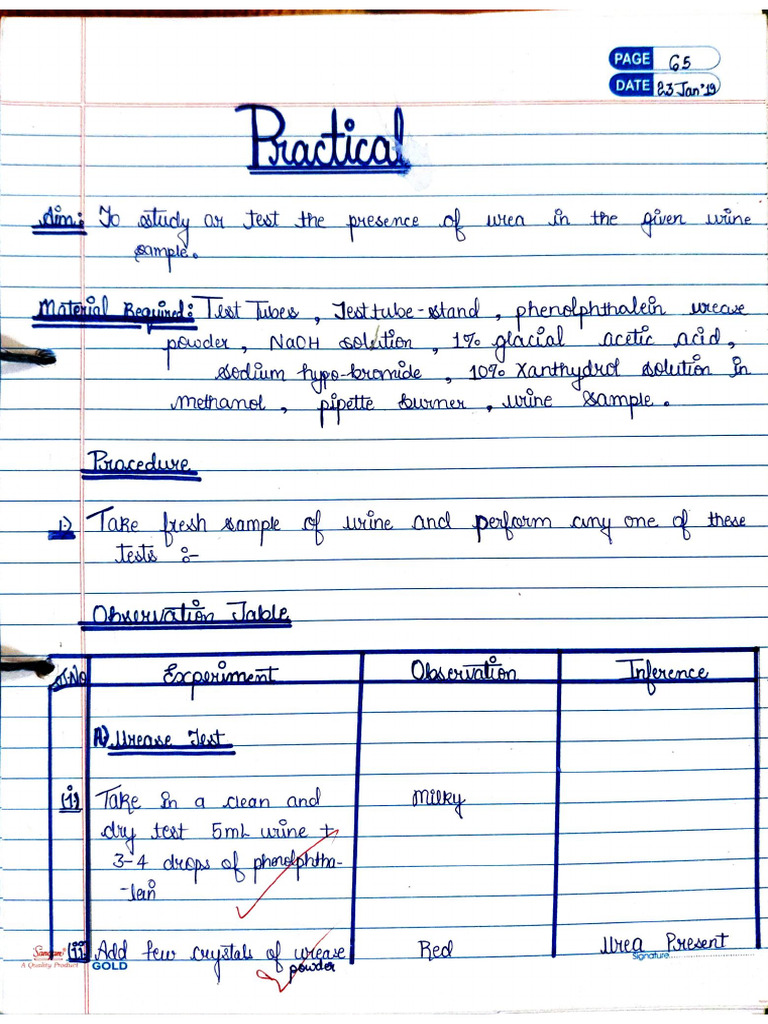 PAGE 65
DATE 23 Jan'19
Practical
Aim: To study or test the presence of urea in the given urine
sample.
Material Required: Test Tubes, Test tube-stand, phenolphthalein urease
powder, NaOH solution, 1% glacial acetic acid,
sodium hypo-bromide, 10% Xanthydrol solution in
methanol, pipette burner, urine sample.
Procedure
1) Take fresh sample of urine and perform any one of these
tests :-
Observation Table
S.No Experiment Observation Inference
A) Urease Test
(i) Take in a clean and Milky
dry test 5mL urine +
3-4 drops of phenolphtha-
-lein
(ii) Add few crystals of urease Red Urea Present
powder
Sangam
A Quality Product GOLD
Signature